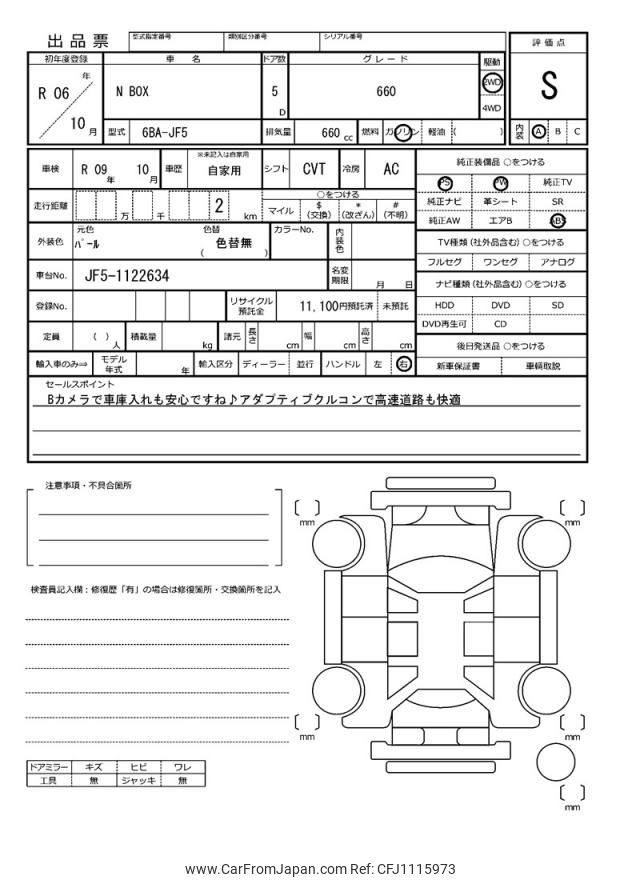 出品票
型式指定番号 類別区分番号 シリアル番号
初年度登録 車名 ドア数 グレード 駆動 評価点
R 06 年 10 月
N BOX 5 D 660 2WD 4WD S
型式 6BA-JF5 排気量 660 cc 燃料 ガソリン 軽油 ( ) 内装 A B C
車検 R 09 年 10 月 車歴 ※未記入は自家用 自家用 シフト CVT 冷房 AC
走行距離 万 千 2 km ○をつける
マイル $(交換) *(改ざん) #(不明)
外装色 元色 パール 色替 色替無 ( ) カラーNo. 内装色
車台No. JF5-1122634 名変期限 月 日
登録No. リサイクル預託金 11,100円預託済 未預託
定員 ( ) 人 積載量 kg 諸元 長さ cm 幅 cm 高さ cm
輸入車のみ⇒ モデル年式 年 輸入区分 ディーラー 並行 ハンドル 左 右
純正装備品 ○をつける
PS PW 純正TV
純正ナビ 革シート SR
純正AW エアB ABS
TV種類(社外品含む) ○をつける
フルセグ ワンセグ アナログ
ナビ種類(社外品含む) ○をつける
HDD DVD SD
DVD再生可 CD
後日発送品 ○をつける
新車保証書 車輌取説
セールスポイント
Bカメラで車庫入れも安心ですね♪アダプティブクルコンで高速道路も快適
注意事項・不具合箇所
検査員記入欄：修復歴「有」の場合は修復箇所・交換箇所を記入
mm mm
mm mm
mm
ドアミラー キズ ヒビ ワレ
工具 無 ジャッキ 無
www.CarFromJapan.com Ref: CFJ1115973